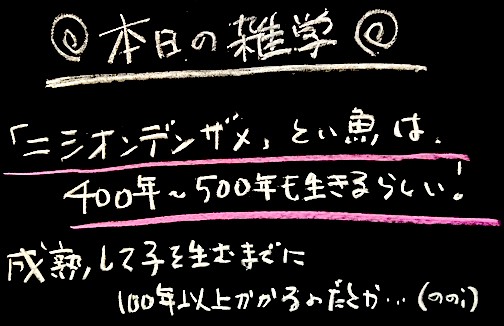 @ 本日の雑学 @
「ニシオンデンザメ」とい魚は、
400年~500年も生きるらしい!
成熟して子を生むまでに
100年以上かかるのだとか…(のの;)